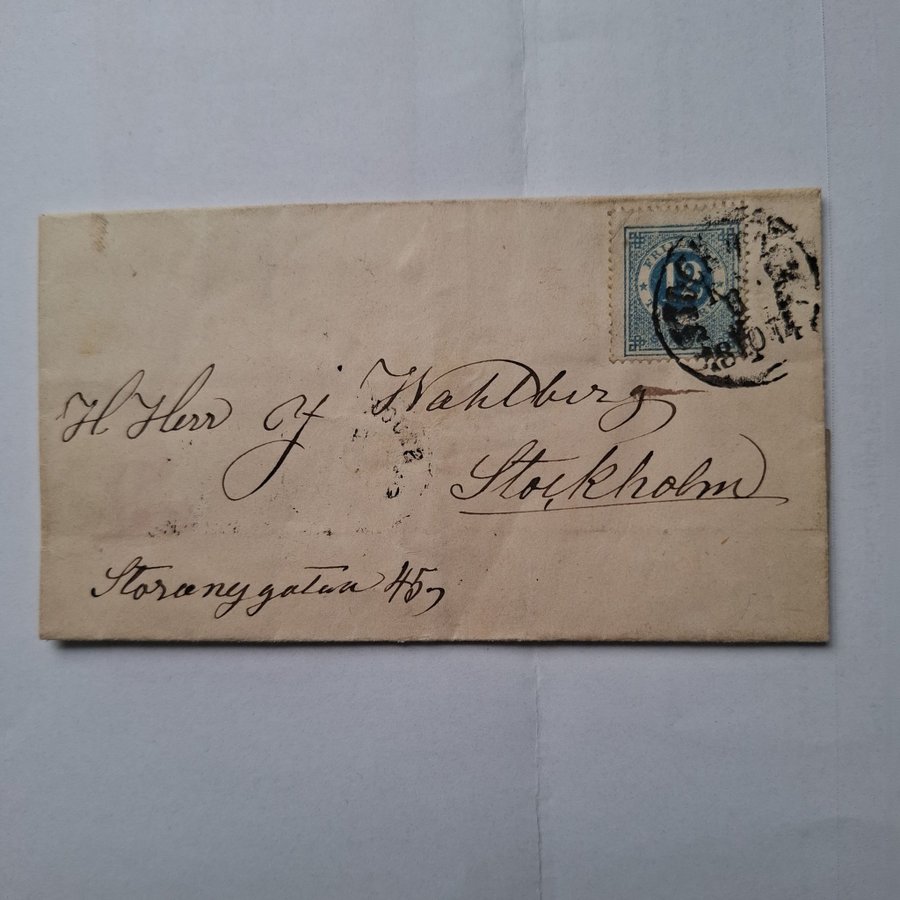 FRI
12
H Herr J Wahlberg
Stockholm
Storanygatan 45